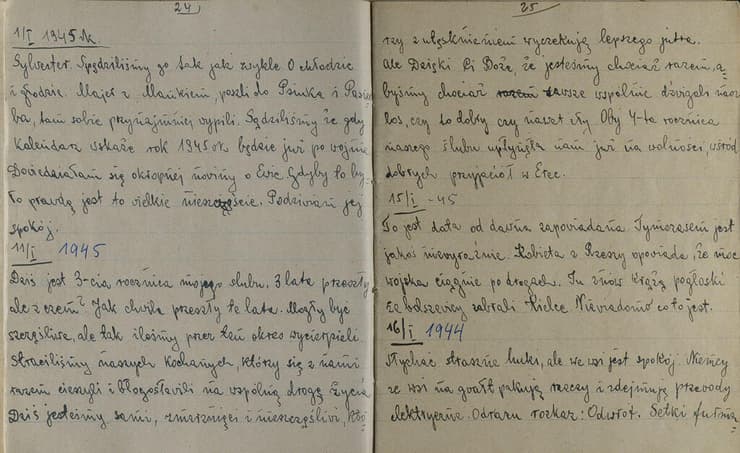 24
1/I 1945 r.
Sylwester. Spędziliśmy go tak jak zwykle o chłodzie
i głodzie. Majer z Mańkiem, poszli do
ba, tam sobie przynajmniej wypili. Sądziliśmy że gdy
Kalendarz wskaże rok 1945 ok będzie już po wojnie
Dowiedziałam się okropnej nowiny o Ewie Gdyby to by-
ło prawdą jest to wielkie nieszczęście. Podziwiam jej
spokój.
11/I 1945
Dziś jest 3-cia rocznica mojego ślubu, 3 lata przeszły
ale z czem? Jak chwila przeszły te lata. Mogły być
szczęśliwe, ale tak ilośmy przez ten okres wycierpieli.
Straciliśmy naszych Kochanych, którzy się z nami
razem cieszyli i błogosławili na wspólną drogę życia
Dziś jesteśmy sami, zmarznięci i nieszczęśliwi, któ-
25
rzy z utęsknieniem wyczekują lepszego jutra.
Ale Dzięki Ci Boże, że jesteśmy chociaż razem, a-
byśmy chociaż razem zawsze wspólnie dźwigali nasz
los, czy to dobry czy nawet zły. Oby 4-ta rocznica
naszego ślubu upłynęła nam już na wolności, wśród
dobrych przyjaciół w Erec.
15/I -45
To jest data od dawna zapowiadana. Tymczasem jest
jakoś niewyraźnie. Kobieta z Rzeszy opowiada, że moc
wojska ciągnie po drogach. Tu znów krążą pogłoski
że bolszewicy zabrali Kielce Niewiadomo co to jest.
16/I 1944
Słychać straszne huki, ale we wsi jest spokój. Niemcy
ze wsi na gwałt pakują rzeczy i zdejmują przewody
elektryczne. Odrazu rozkaz: Odwrót. Setki furma-